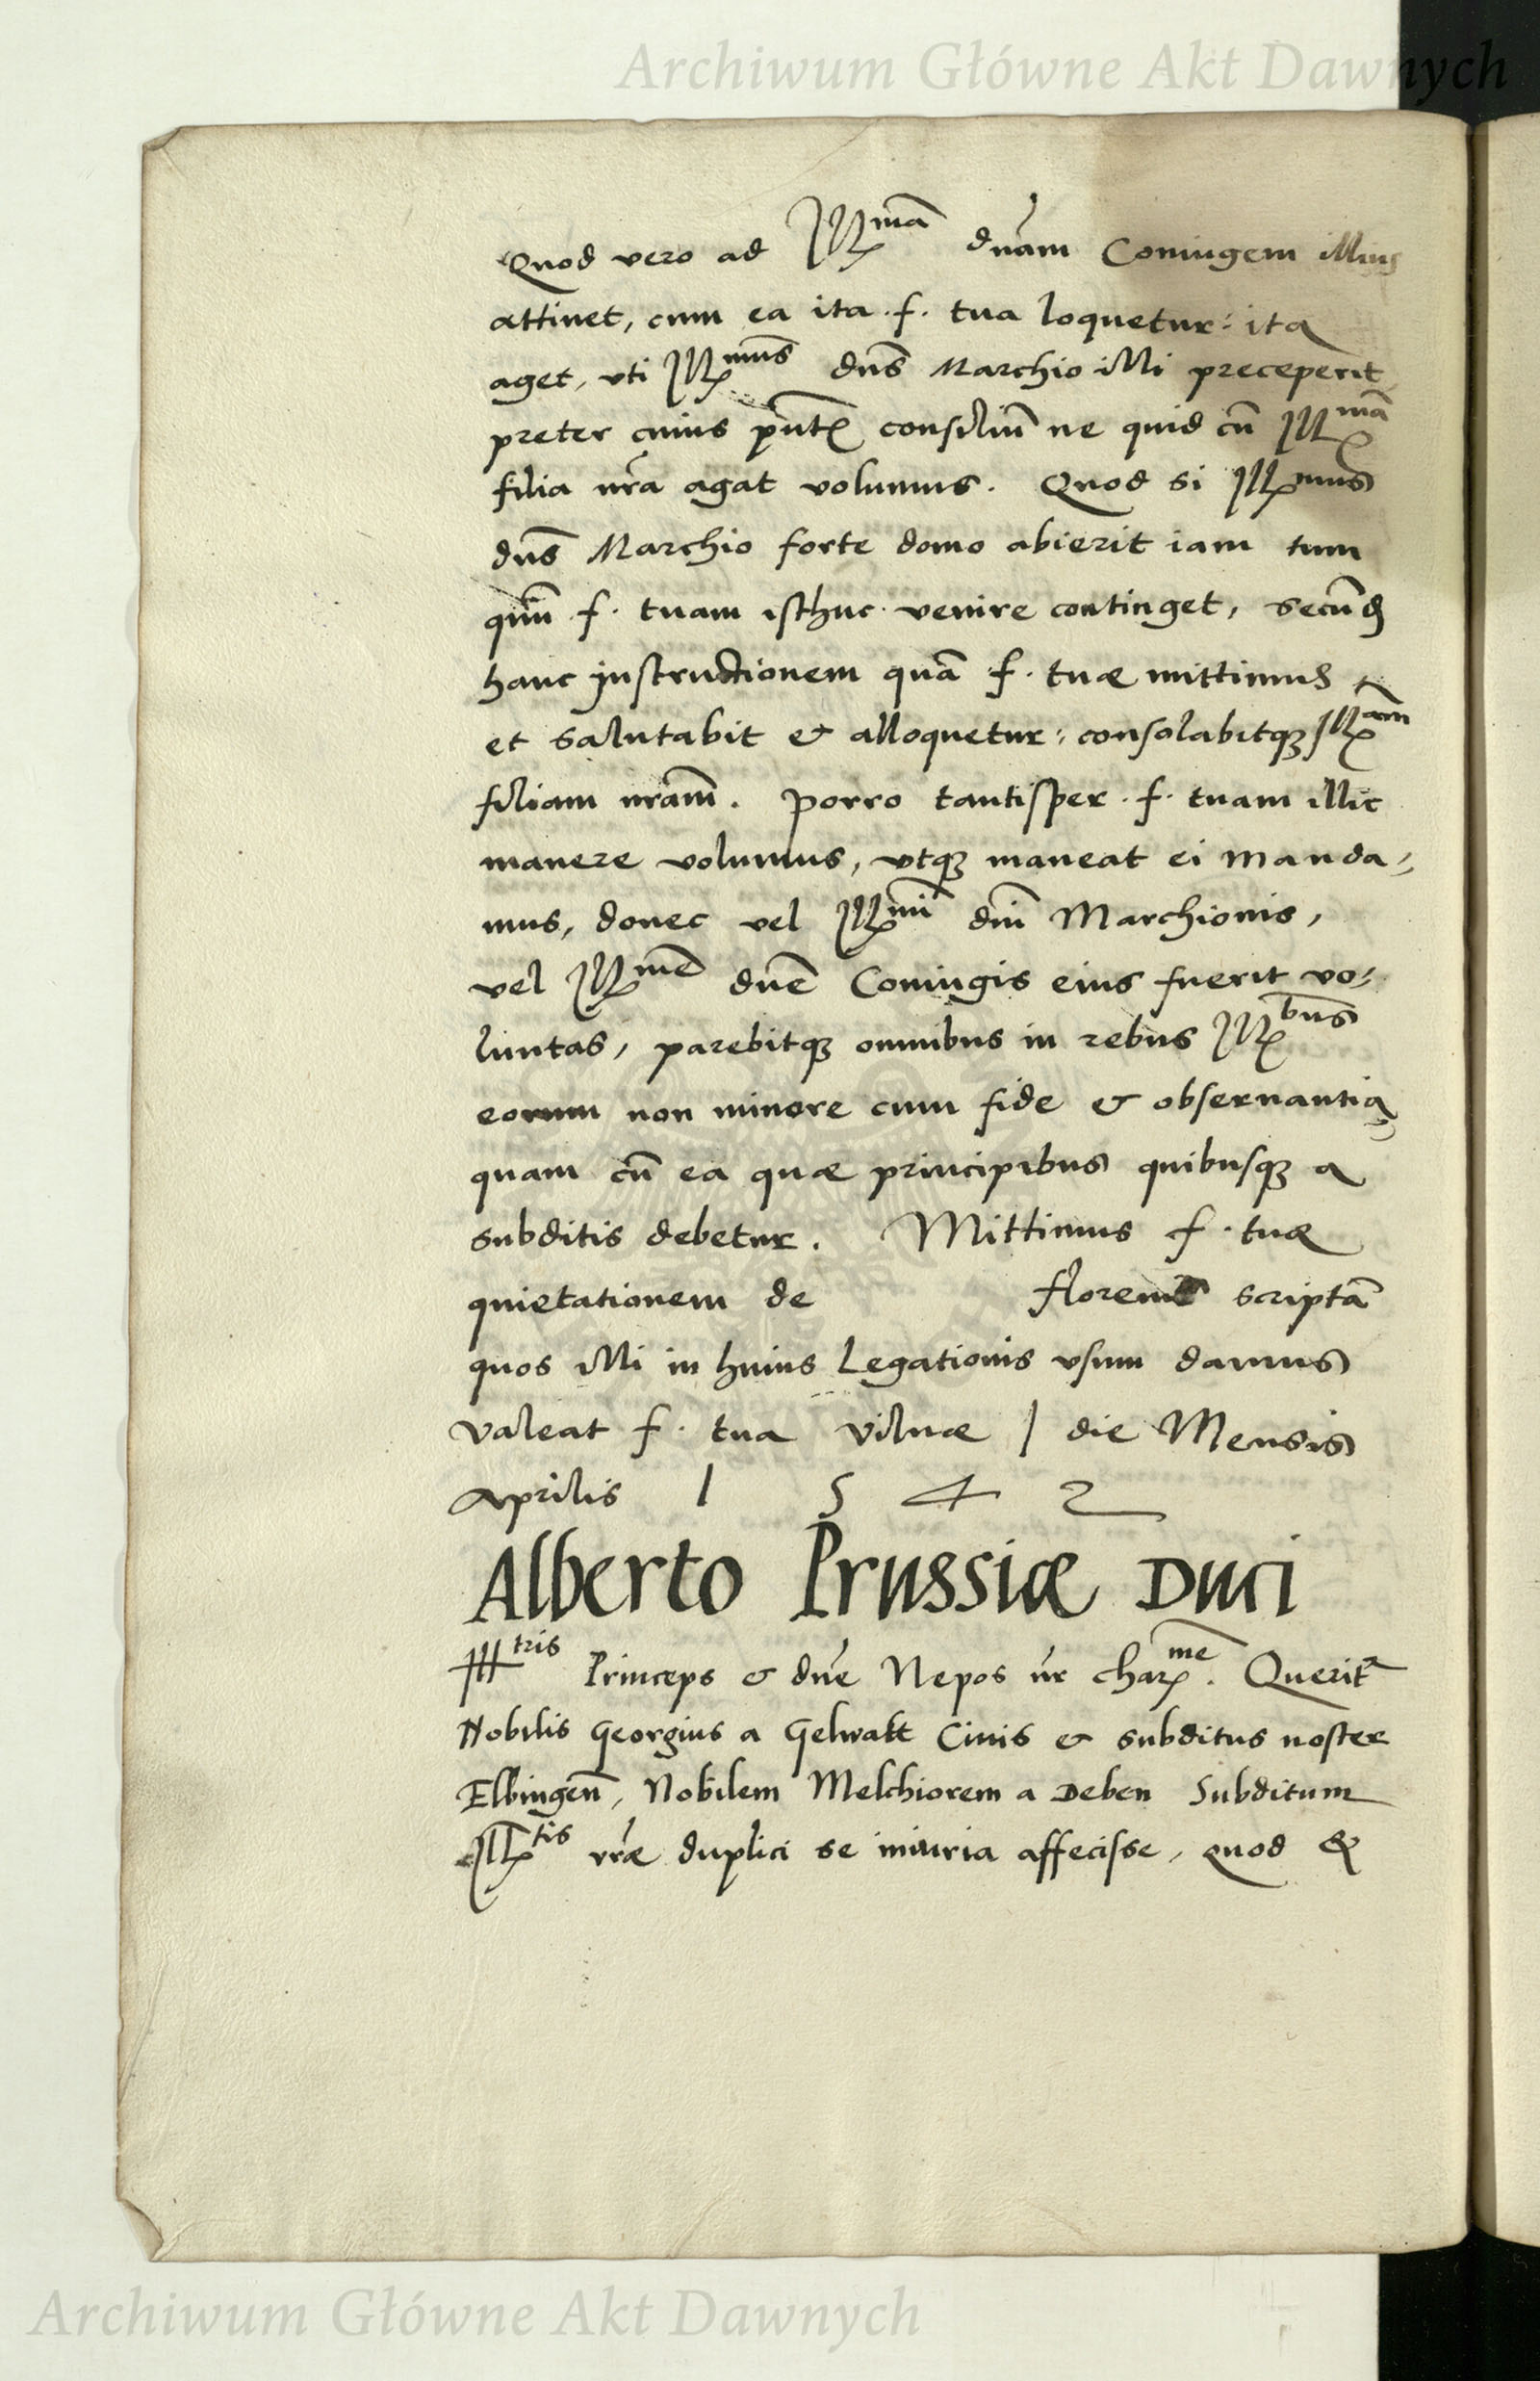 Archiwum Główne Akt Dawnych
Quod vero ad Illmã dnãm Coniugem illius
attinet, cum ea ita f. tua loquetur: ita
aget, vti Illmus dns Marchio illi preceperit
preter cuius pñte consiliũ ne quid cũ Illmã
filia nrã agat volumus. Quod si Illmus
dns Marchio forte domo abierit iam tum
quũ f. tuam isthuc venire continget, secund
hanc instructionem quã f. tuæ mittimus
et salutabit & alloquetur: consolabitq3 Illam
filiam nram. Porro tantisper f. tuam illic
manere volumus, vtq3 maneat ei manda-
mus, donec vel Illmi dni Marchionis,
vel Illme dne Coniugis eius fuerit vo-
luntas, parebitq3 omnibus in rebus Illbus
eorum non minore cum fide & obseruantia
quam cũ ea quæ principibus quibusq3 a
subditis debetur. Mittimus f. tuæ
quietationem de floren scriptã
quos illi in huius Legationis vsum damus
Valeat f. tua Vilnæ 1 die Mensis
Aprilis 1 5 4 2
Alberto Prussiæ Duci
Illtris Princeps & dne Nepos nr charme. Querit
Nobilis Georgius a Gelwalt Ciuis & subditus noster
Elbingeñ, Nobilem Melchiorem a Deben Subditum
Illtis vræ duplici se iniuria affecisse, quod &
Archiwum Główne Akt Dawnych